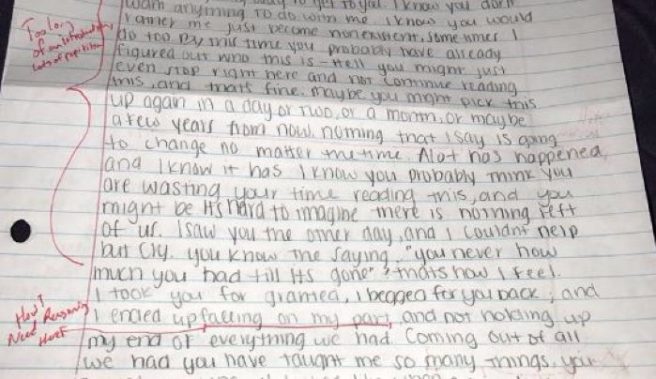 to get to you. I know you don't
want anything to do with me I know you would
rather me just become nonexistent, some times I
do too. By this time you probably have already
figured out who this is - hell you might just
even stop right here and not continue reading
this, and thats fine. maybe you might pick this
up again in a day or two, or a month, or maybe
a few years from now. nothing that I say is going
to change no matter the time. Alot has happened,
and I know it has I know you probably think you
are wasting your time reading this, and you
might be its hard to imagine there is nothing left
of us. I saw you the other day, and I couldnt help
but cry. you know the saying, "you never how
much you had till its gone" thats how I feel.
I took you for granted, I begged for you back, and
I ended up failing on my part, and not holding up
my end of everything we had. Coming out of all
we had you have taught me so many things, your
Too long
of an introduction
Lots of repitition
How?
Need Reasoning
Here